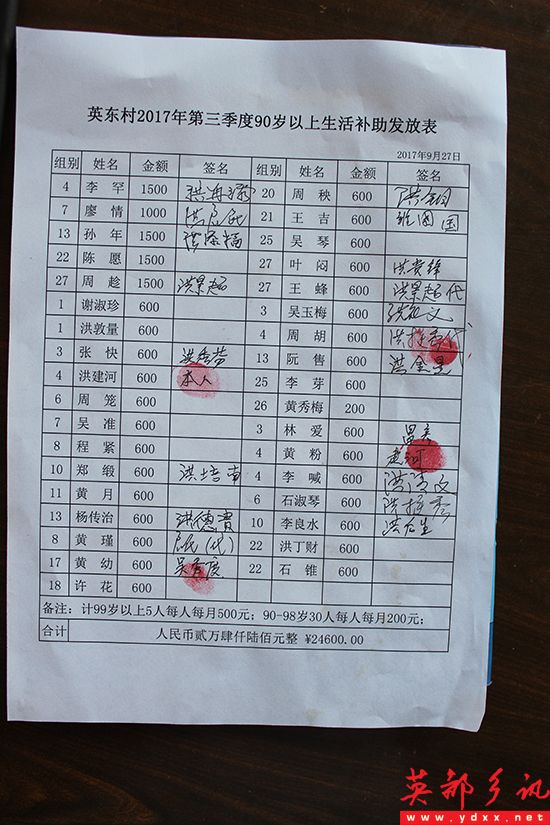 英东村2017年第三季度90岁以上生活补助发放表
2017年9月27日
组别 姓名 金额 签名 组别 姓名 金额 签名
4 李罕 1500 20 周秧 600
7 廖情 1000 21 王吉 600
13 孙年 1500 25 吴琴 600
22 陈愿 1500 27 叶闷 600
27 周趁 1500 洪景超 27 王蜂 600 洪景超代
1 谢淑珍 600 3 吴玉梅 600
1 洪敦量 600 4 周胡 600
3 张快 600 13 阮售 600 洪金星
4 洪建河 600 本人 25 李芽 600
6 周笼 600 26 黄秀梅 200
7 吴准 600 3 林爱 600
8 程紧 600 4 黄粉 600
10 郑缎 600 洪培南 4 李喊 600
11 黄月 600 6 石淑琴 600
13 杨传治 600 洪德贵 10 李良水 600
8 黄瑾 600 22 洪丁财 600
17 黄幼 600 22 石锥 600
18 许花 600
备注：计99岁以上5人每人每月500元；90-98岁30人每人每月200元；
合计 人民币贰万肆仟陆佰元整 ¥24600.00
英都乡讯
www.ydxx.net